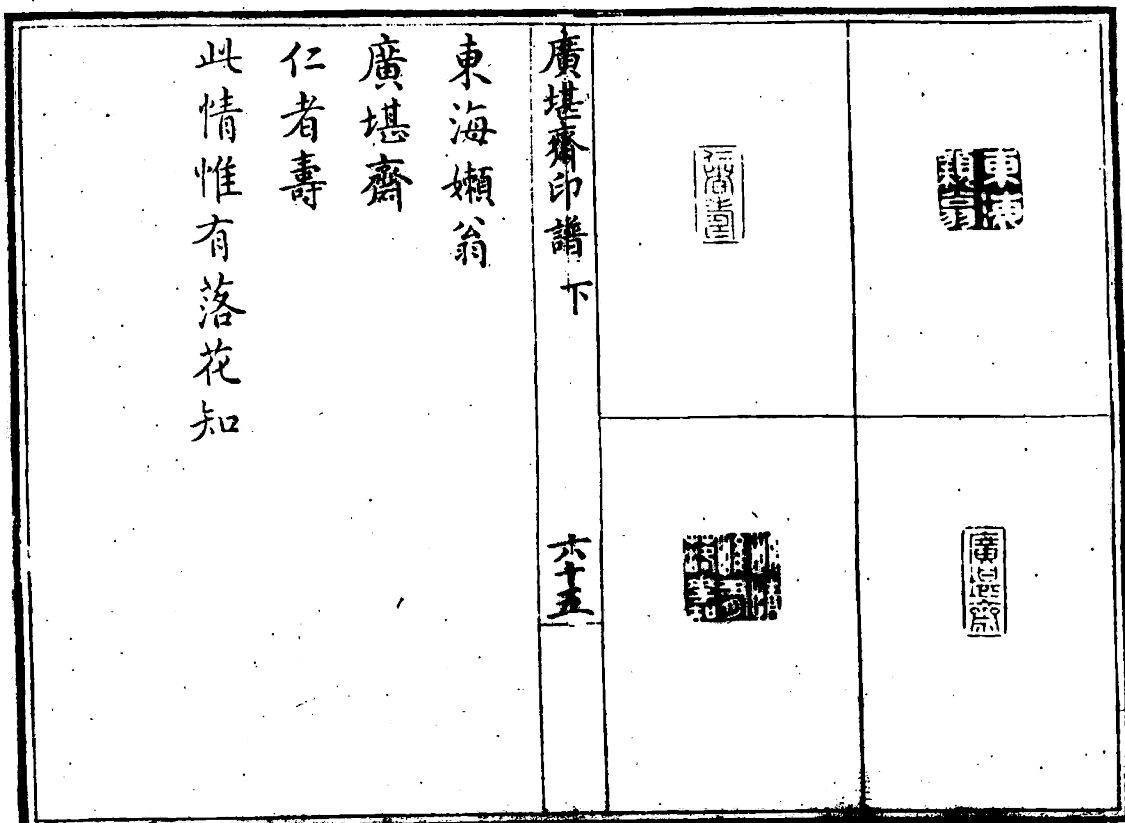 東海嬾翁
廣堪齋
仁者壽
此情惟有落花知
廣堪齋印譜 下
六十五
東海嬾翁
廣堪齋
仁者壽
此情惟有落花知